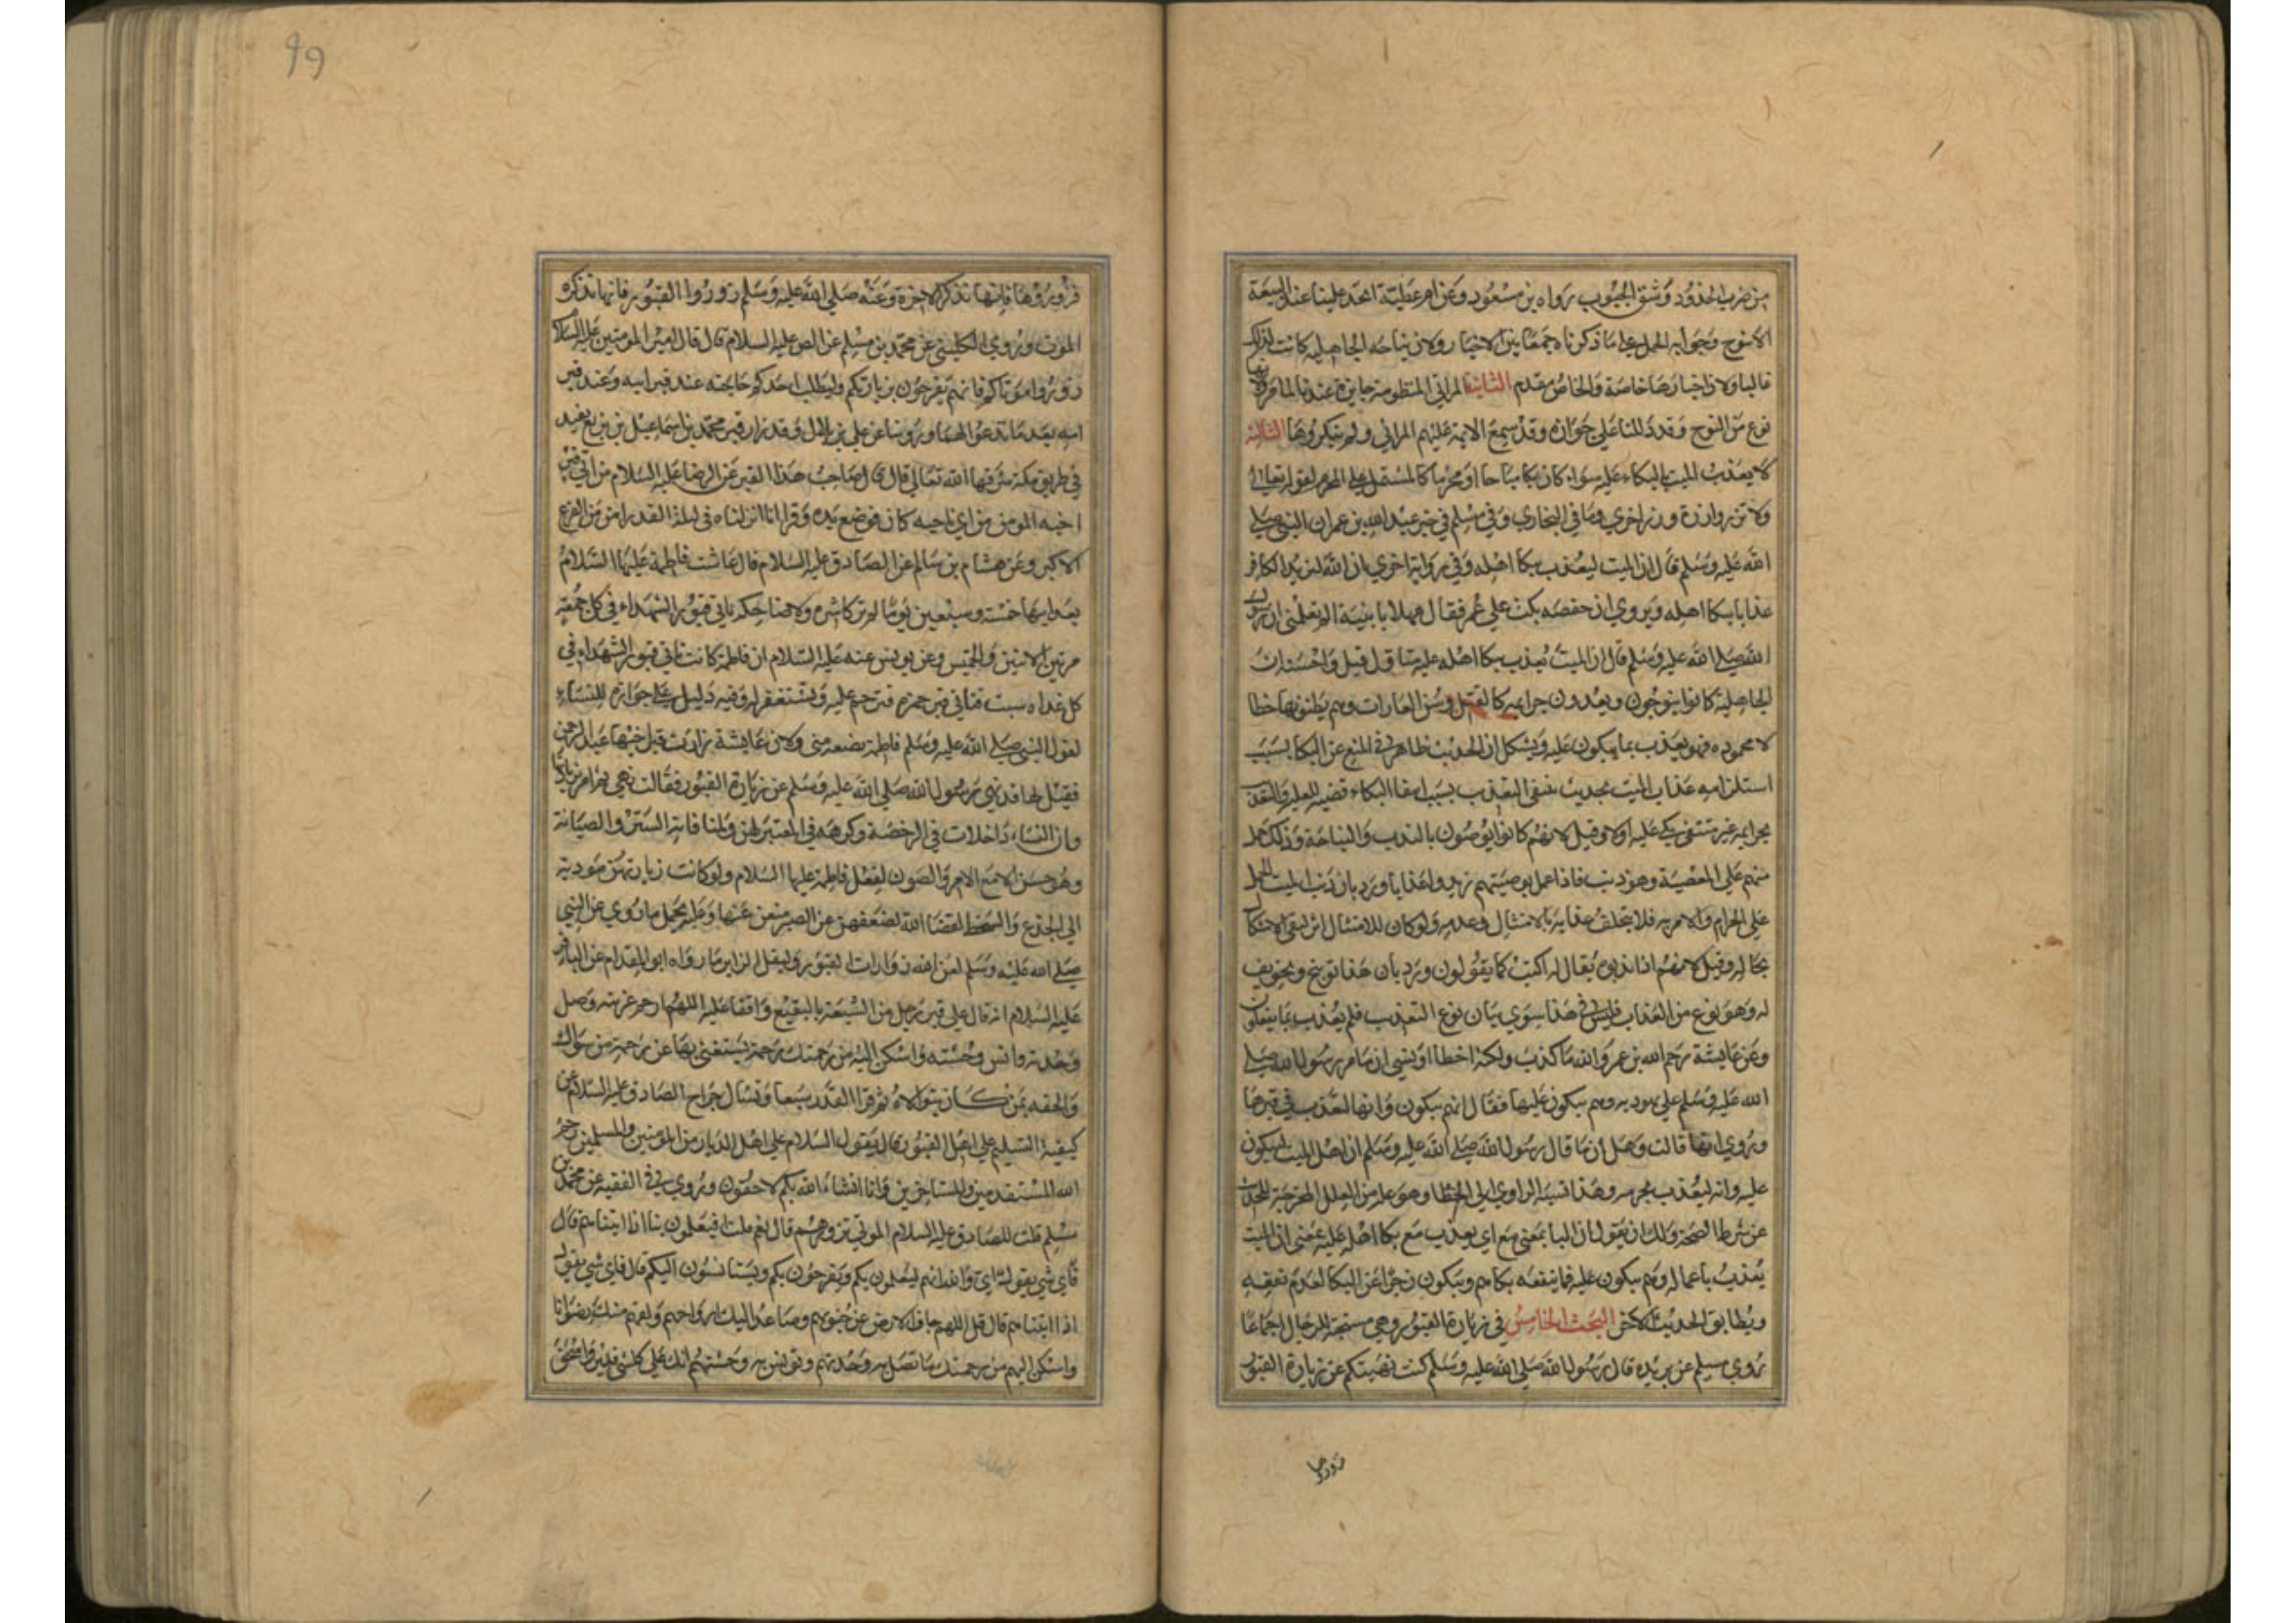 من ضرب الخدود وشق الجيوب رواه بن مسعود وعن ام عطية اخذ علينا عند البيعة
الا ننوح وجوابه الحمل على ما ذكرناه جمعا بين الاخبار ولان نياحه الجاهلية كانت كذلك
غالبا ولان اخبارها خاصة والخاص مقدم الثانية المراثي المنظومة جايزة عندنا لما مر ولانها
نوع من النوح وقد دللنا على جوازه وقد سمع الائمة عليهم المراثي ولم ينكروها الثالثة
لا يعذب الميت بالبكاء عليه سواء كان بكا مباحا او محرما كالمشتمل على المحرم لقوله تعالى
ولا تزر وازرة وزر اخرى وما في البخاري وفي مسلم في خبر عبد الله بن عمر ان النبي صلى
الله عليه وسلم قال ان الميت ليعذب ببكا اهله وفي رواية اخرى ان الله ليزيد الكافر
عذابا ببكا اهله ويروى ان حفصه بكت على عمر فقال مهلا يا بنية الم تعلمي ان رسول
الله صلى الله عليه وسلم قال ان الميت يعذب ببكا اهله عليه متاول قيل واحسنه ان
الجاهلية كانوا ينوحون ويعدون جرايمه كالقتل وشن الغارات وهم يظنونها خصا
لا محموده فهو يعذب بما يبكون عليه ويشكل ان الحديث ظاهر في المنع عن البكا بسبب
استلزامه عذاب الميت بحديث ينتفى التعذيب بسبب انتفا البكاء قضيه للعلية والتعذيب
بجرايمه غير منتف بكى عليه اولا وقيل لانهم كانوا يوصون بالندب والنياحة وذلك حمل
منهم على المعصية وهو ذنب فاذا عمل بوصيتهم زيدوا عذابا ورد بان ذنب الميت الحمل
على الحرام والامر به فلا يختلف عذابه بالامتثال وعدمه ولو كان للامتثال اثر لبقي الاشكال
بحاله وقيل لانهم اذا ندبوه يقال له اكنت كما يقولون ورد بان هذا توبيخ وتخويف
له وهو نوع من العذاب فليس في هذا سوى بيان نوع التعذيب فلم يعذب بما يفعلون
وعن عايشة رحم الله بن عمر والله ما كذب ولكنه اخطا او نسي انما مر رسول الله صلى
الله عليه وسلم على يهوديه وهم يبكون عليها فقال انهم يبكون وانها لتعذب في قبرها
وروي انها قالت وهل انما قال رسول الله صلى الله عليه وسلم ان اهل الميت ليبكون
عليه وانه ليعذب بجرمه وهذا نسبة الراوي الى الخطا وهو علة من العلل المخرجة للحديث
عن شرط الصحة ولك ان تقول ان البا بمعنى مع اي يعذب مع بكا اهله عليه بمعنى ان الميت
يعذب باعماله وهم يبكون عليه فما ينفعه بكاهم ويكون زجرا عن البكا لعدم نفعه
ويطابق الحديث الاخر البحث الخامس في زيارة القبور وهي مستحبة للرجال اجماعا
روى مسلم عن بريده قال رسول الله صلى الله عليه وسلم كنت نهيتكم عن زيارة القبور
زوروها
٩٩
فزوروها فانها تذكر الاخرة وعنه صلى الله عليه وسلم زوروا القبور فانها تذكره
الموت وروى الكليني عن محمد بن مسلم عن الص عليه السلام قال قال امير المومنين عليه السلام
زوروا موتاكم فانهم يفرحون بزيارتكم وليطلب احدكم حاجته عند قبر ابيه وعند قبر
امه بعد ما تدعو لهما وروينا عن علي بن بلال وقد زار قبر محمد بن اسماعيل بن بزيع بفيد
في طريق مكة شرفها الله تعالى قال قال صاحب هذا القبر عن الرضا عليه السلام من اتى قبر
اخيه المومن من اي ناحيه كان فوضع يده وقرا انا انزلناه في ليلة القدر امن من الفزع
الاكبر وعن هشام بن سالم عن الصادق عليه السلام قال عاشت فاطمة عليها السلام
بعد ابيها خمسة وسبعين يوما لم تر كاشره ولا ضاحكه تاتي قبور الشهداء في كل جمعة
مرتين الاثنين والخميس وعن يونس عنه عليه السلام ان فاطمة كانت تاتي قبور الشهداء في
كل غداه سبت فتاتي قبر حمزه فترحم عليه وتستغفر له وفيه دليل على جوازه للنساء
لقول النبي صلى الله عليه وسلم فاطمة بضعة مني ولان عايشة زارت قبر اخيها عبد الرحمن
فقيل لها قد نهى رسول الله صلى الله عليه وسلم عن زيارة القبور فقالت نهى ثم امر بزيارتها
وان النساء داخلات في الرخصة وكرهه في المعتبر لهن ولمنافاة الستر والصيانة
وهو حسن الا مع الامر والصون لفعل فاطمة عليها السلام ولو كانت زيارتهن مودية
الى الجزع والسخط لقضا الله لضعفهن عن الصبر منعن عنها وعليه يحمل ما روي عن النبي
صلى الله عليه وسلم لعن الله زوارات القبور وليقل الزاير ما رواه ابو المقدام عن الباقر
عليه السلام انه قال على قبر رجل من الشيعة بالبقيع واقفا عليه اللهم ارحم غربته وصل
وحدته وانس وحشته واسكن اليه من رحمتك رحمة يستغني بها عن رحمة من سواك
والحقه بمن كان يتولاه ثم قرا القدر سبعا وتسال جراح الصادق عليه السلام عن
كيفية التسليم على اهل القبور قال يقول السلام على اهل الديار من المومنين والمسلمين رحم
الله المستقدمين والمستاخرين وانا ان شاء الله بكم لاحقون وروي في الفقيه عن محمد بن
مسلم قلت للصادق عليه السلام الموتى نزورهم قال نعم قلت فيعلمون بنا اذا اتيناهم قال
اي والله انهم ليعلمون بكم ويفرحون بكم ويستانسون اليكم قال فاي شي نقول
اذا اتيناهم قال قل اللهم جاف الارض عن جنوبهم وصاعد اليك ارواحهم ولقهم منك رضوانا
واسكن اليهم من رحمتك ما تصل به وحدتهم وتونس به وحشتهم انك على كل شي قدير